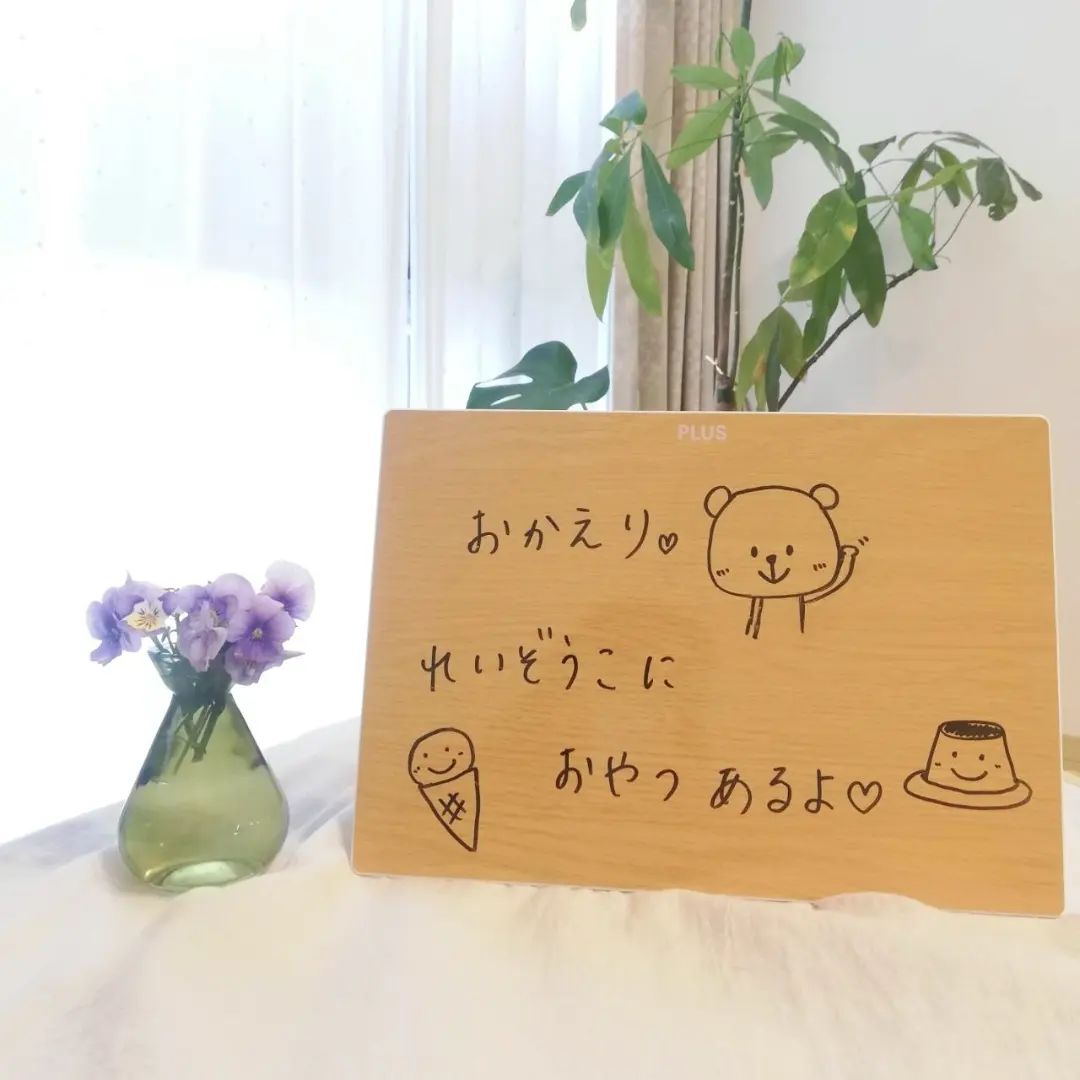 PLUS
おかえり♡
れいぞうこに
おやつ あるよ♡